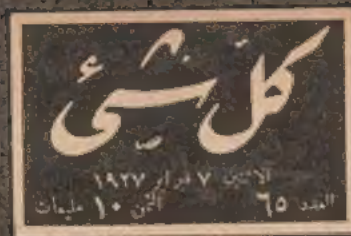 كل شيء
الاثنين ٧ فبراير ١٩٢٧
العدد ٦٥ الثمن ١٠ مليمات